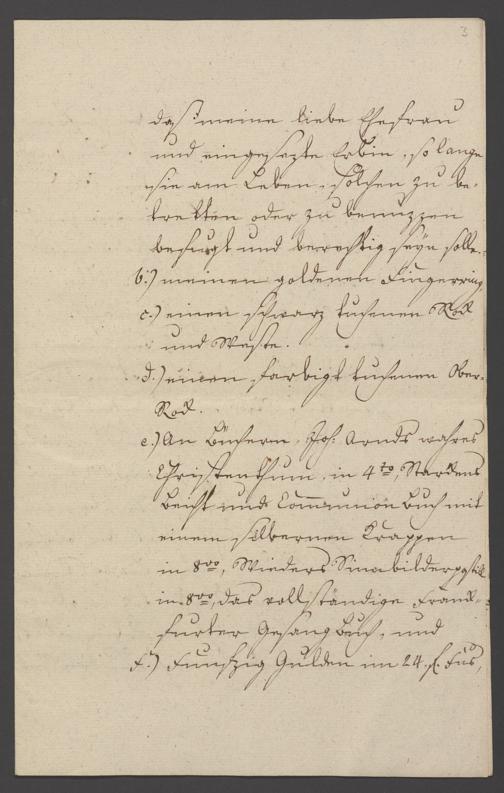 3
daß meine liebe Ehefrau
und eingesezte Erbin, so lange
sie am Leben, solchen zu be-
tretten oder zu benuzzen
befugt und berechtig seyn solle.
b.) meinen goldenen Fingerring,
c.) einen schwarz tuchenen Rock
und Weste.
d.) einen farbigt tuchenen Ober-
Rock.
e.) An Büchern, Joh. Arnds wahres
Christenthum, in 4to, Starckens
Beicht und Communion Buch mit
einem silbernen Krappen
in 8vo, Sinnbilder
in 8vo, das vollständige Franck-
furter Gesang Buch, und
f.) Funfzig Gulden im 24. fl. Fus,